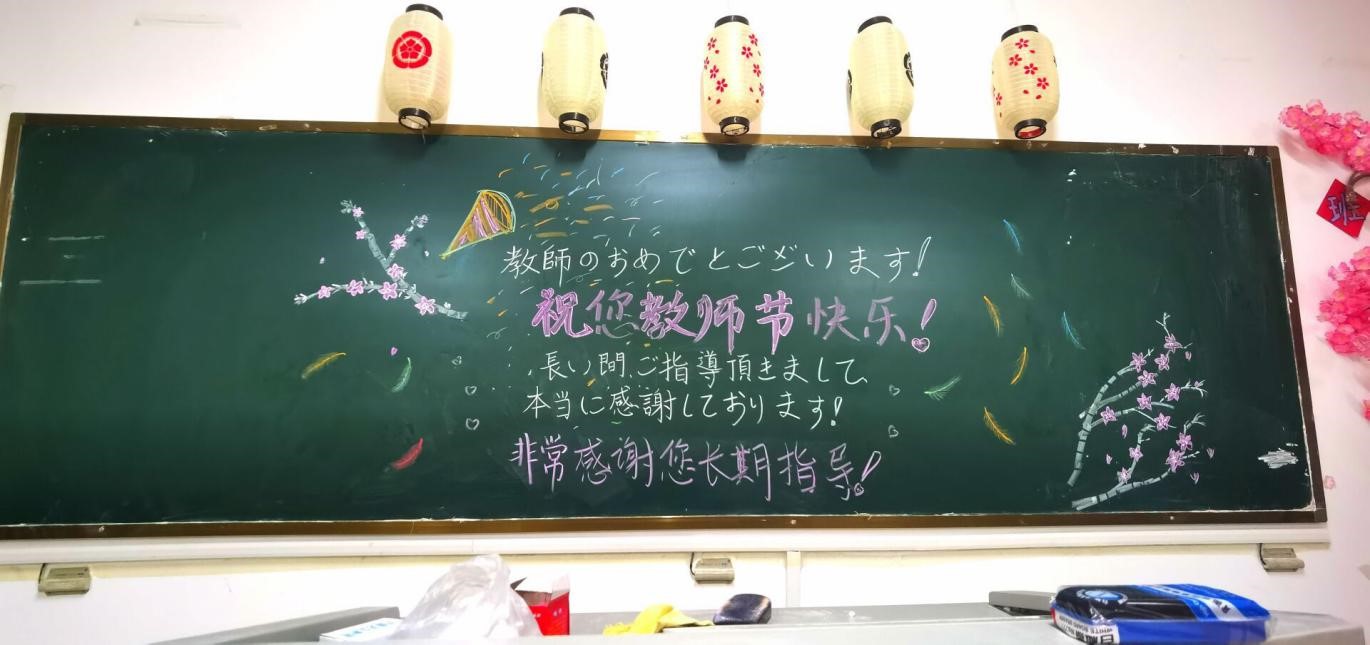 教師のおめでとございます!
祝您教师节快乐!
長い間ご指導頂きまして
本当に感謝しております!
非常感谢您长期指导!
班
WHITE BOARD ERASER